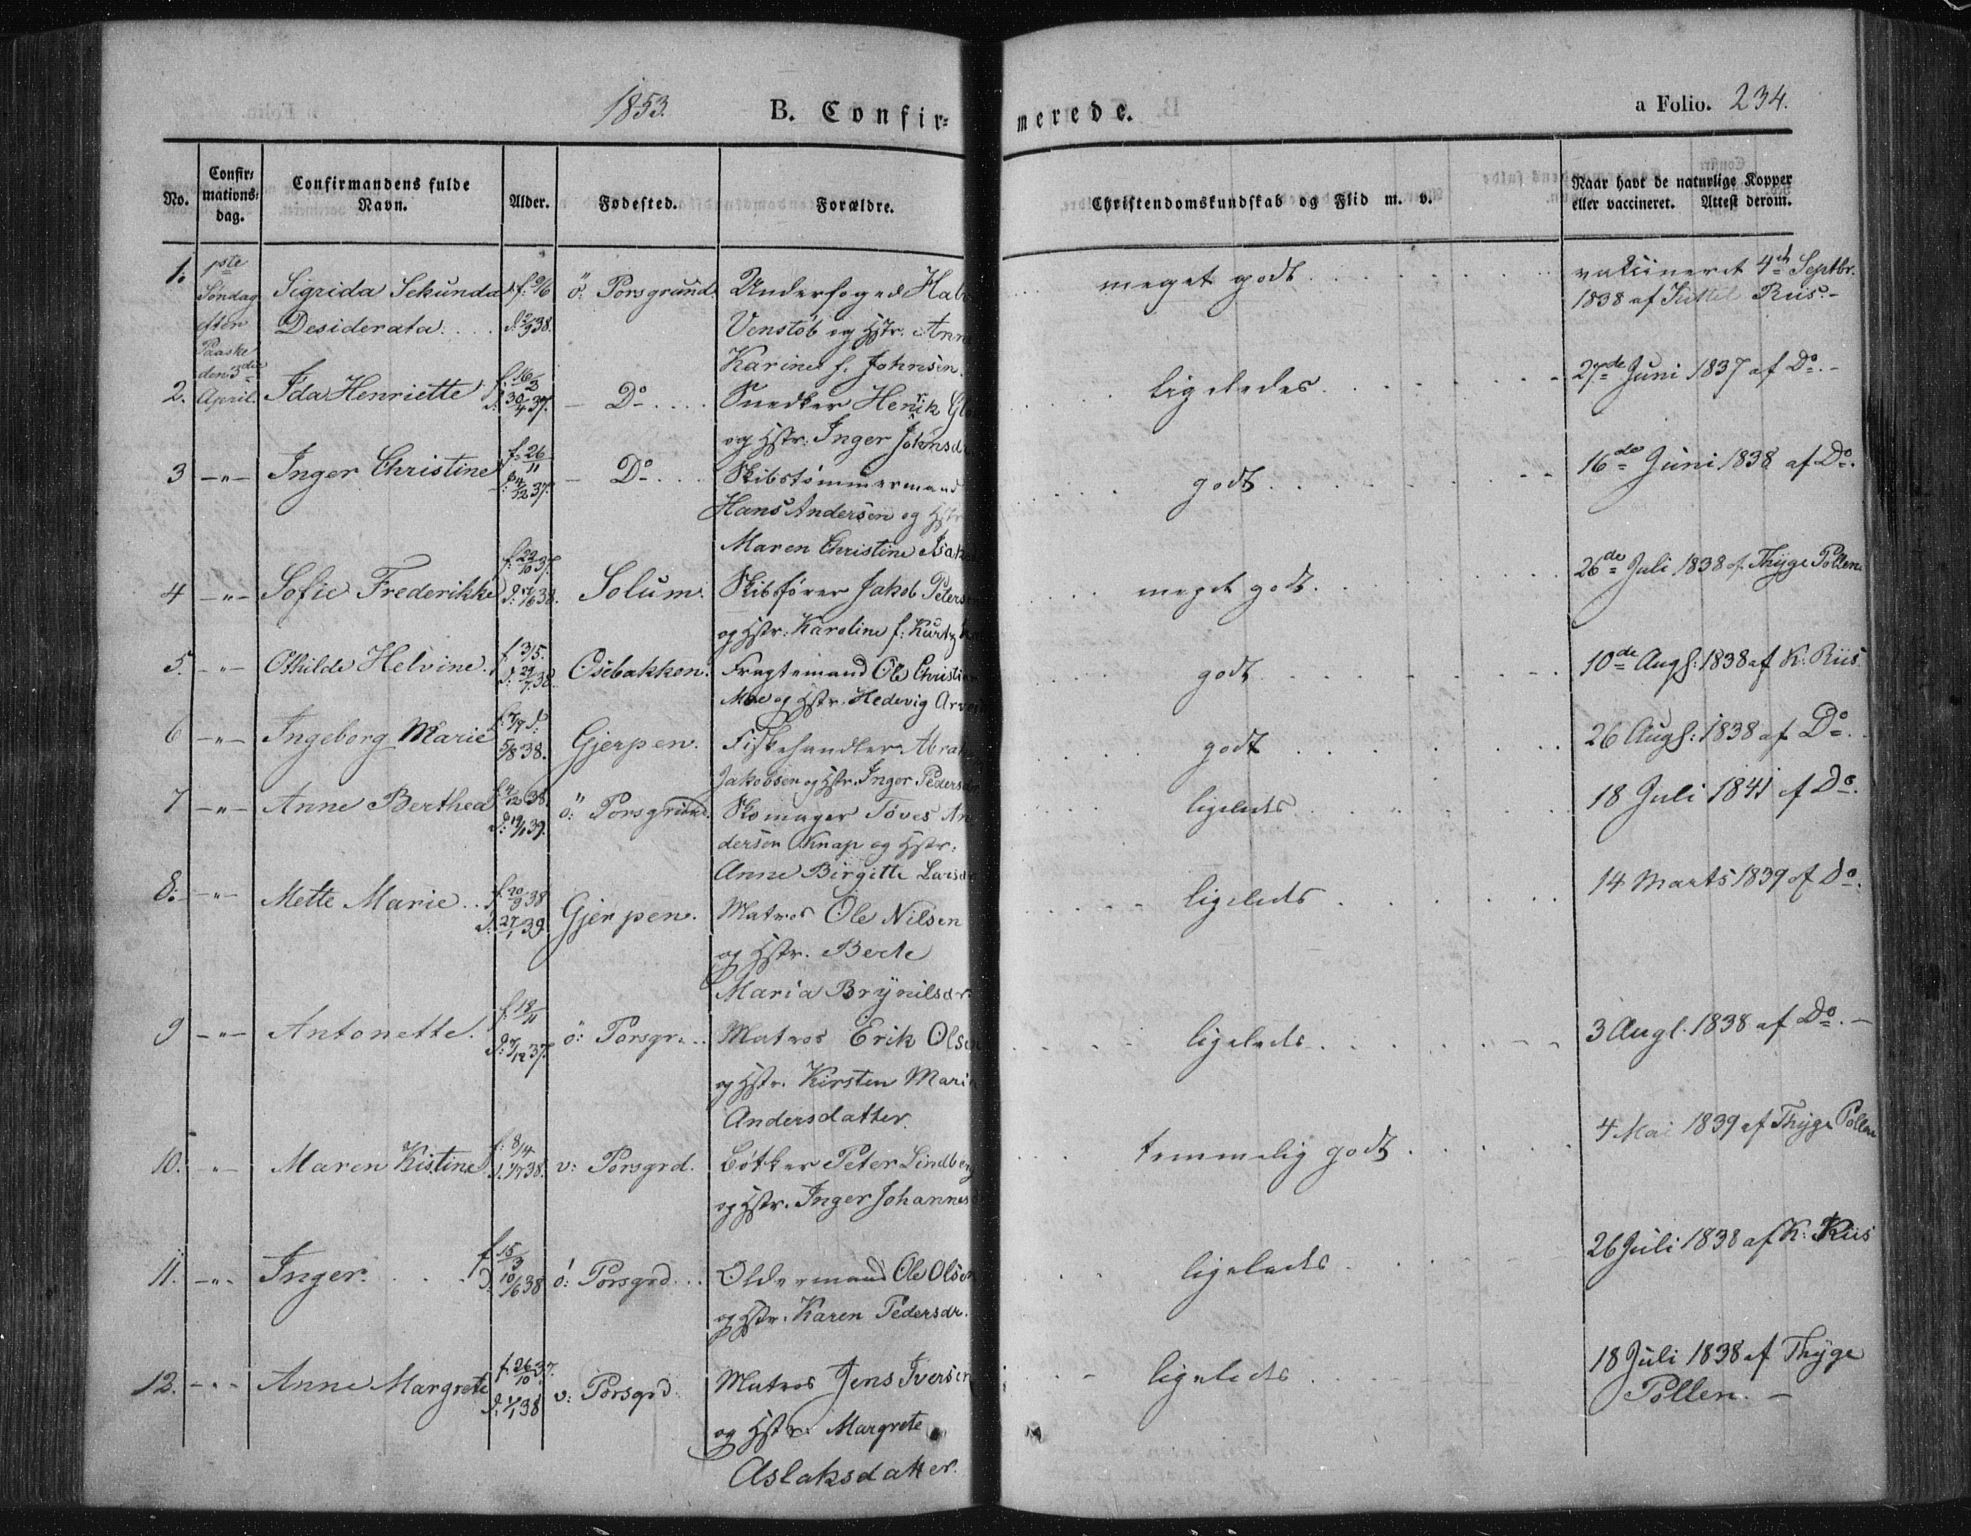 1853.
B. Confir-
merede.
a Folio. 234.
No.
Confir-
mations-
dag.
Confirmandens fulde
Navn.
Alder.
Fødested.
Forældre.
Christendomskundskab og Flid m. v.
Naar havt de naturlige Kopper
eller vaccineret. Attest derom.
1. 1ste
Søndag
efter
Paaske
den 3die
April.
Sigrida Sekunda
Desiderata
f: 9/6
d: 2/9 38.
ö: Porsgrund.
Underfoged Halv
Venstöb og Hstr. Anne
Karine f. Johnsen.
meget godt
vaksineret 4de Septbr.
1838 af Kittel Riis.-
2. Ida Henriette
f: 16/3
d: 30/4 37.
- Do
Snedker Henrik Glo
og Hstr: Inger Johnsdr
ligeledes
27de Juni 1837 af Do.-
3 -"- Inger Christine
f: 26/11
d: 14/12 37.
- Do
Skibstømmermand
Hans Andersen og Hstr
Maren Christine Isak
godt
16de Juni 1838 af Do.
4 -"- Sofie Frederikke
f: 22/10 37.
Solum.
Skibsfører Jakob Petersen
og Hstr: Karoline f: Kurtz
meget godt
26de Juli 1838 af Thyge Pollen
5. -"- Othilde Helvine.
f: 3/5.
d: 29/7 38.
Osebakken.
Fragtemand Ole Christian
Moe og Hstr. Hedevig Arve
godt
10de Augst: 1838 af K: Riis.
6 -"- Ingeborg Marie
5/8 38.
Gjerpen.
Fiskehandler Abrah
Jakobsen og Hstr. Inger Pedersdr
godt
26 Augst: 1838 af Do
7 -"- Anne Berthea
f: 4/12 38.
d: 19/1 39.
ö: Porsgrund.
Skomager Töves An
dersen Knap og Hstr.
Anne Birgitte Larsdr
ligeleds
18 Juli 1841 af Do.
8. -"- Mette Marie
f: 20/9 38
d: 27/1 39
Gjerpen.
Matros Ole Nilsen
og Hstr. Berte
Maria Brynilsdr.
ligeleds
14 Marts 1839 af Do.
9 -"- Antonette.
f: 18/11
d: 7/12 37.
ö: Porsgr.
Matros Erik Olsen
og Hstr. Kirsten Marie
Andersdatter.
ligeleds
3 Augl. 1838 af Do. -
10. -"- Maren Kistine
f: 8/4
38.
v: Porsgrd.
Bøtker Peter Lindberg
og Hstr. Inger Johannes
temmelig godt
4 Mai 1839 af Thyge Pollen
11. -"- Inger.
f: 15/3
d: 10/6 38
ö: Porsgrd
Oldermand Ole Olsen
og Hstr. Karen Pedersdr.
ligeleds
26 Juli 1838 af K: Riis
12. -"- Anne Margrete
f: 26/10 37.
d: 1/1 38
v: Porsgrd
Matros Jens Iversen
og Hstr: Margrete
Aslaksdatter.
ligeleds
18 Juli 1838 af Thyge
Pollen. -